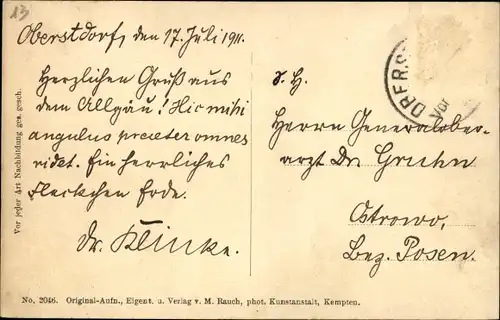 13
Oberstdorf, den 17. Juli 1911.
Herzlichen Gruß aus
dem Allgäu! Hic mihi
angulus praeter omnes
ridet. Ein herrliches
Fleckchen Erde.
Dr. Klinke.
S. H.
Herrn Generalober-
arzt Dr. Gruhn
Ostrowo,
Bez. Posen.
OBERS
Vor
Vor jeder Art Nachbildung ges. gesch.
No. 2046. Original-Aufn., Eigent. u. Verlag v. M. Rauch, phot. Kunstanstalt, Kempten.